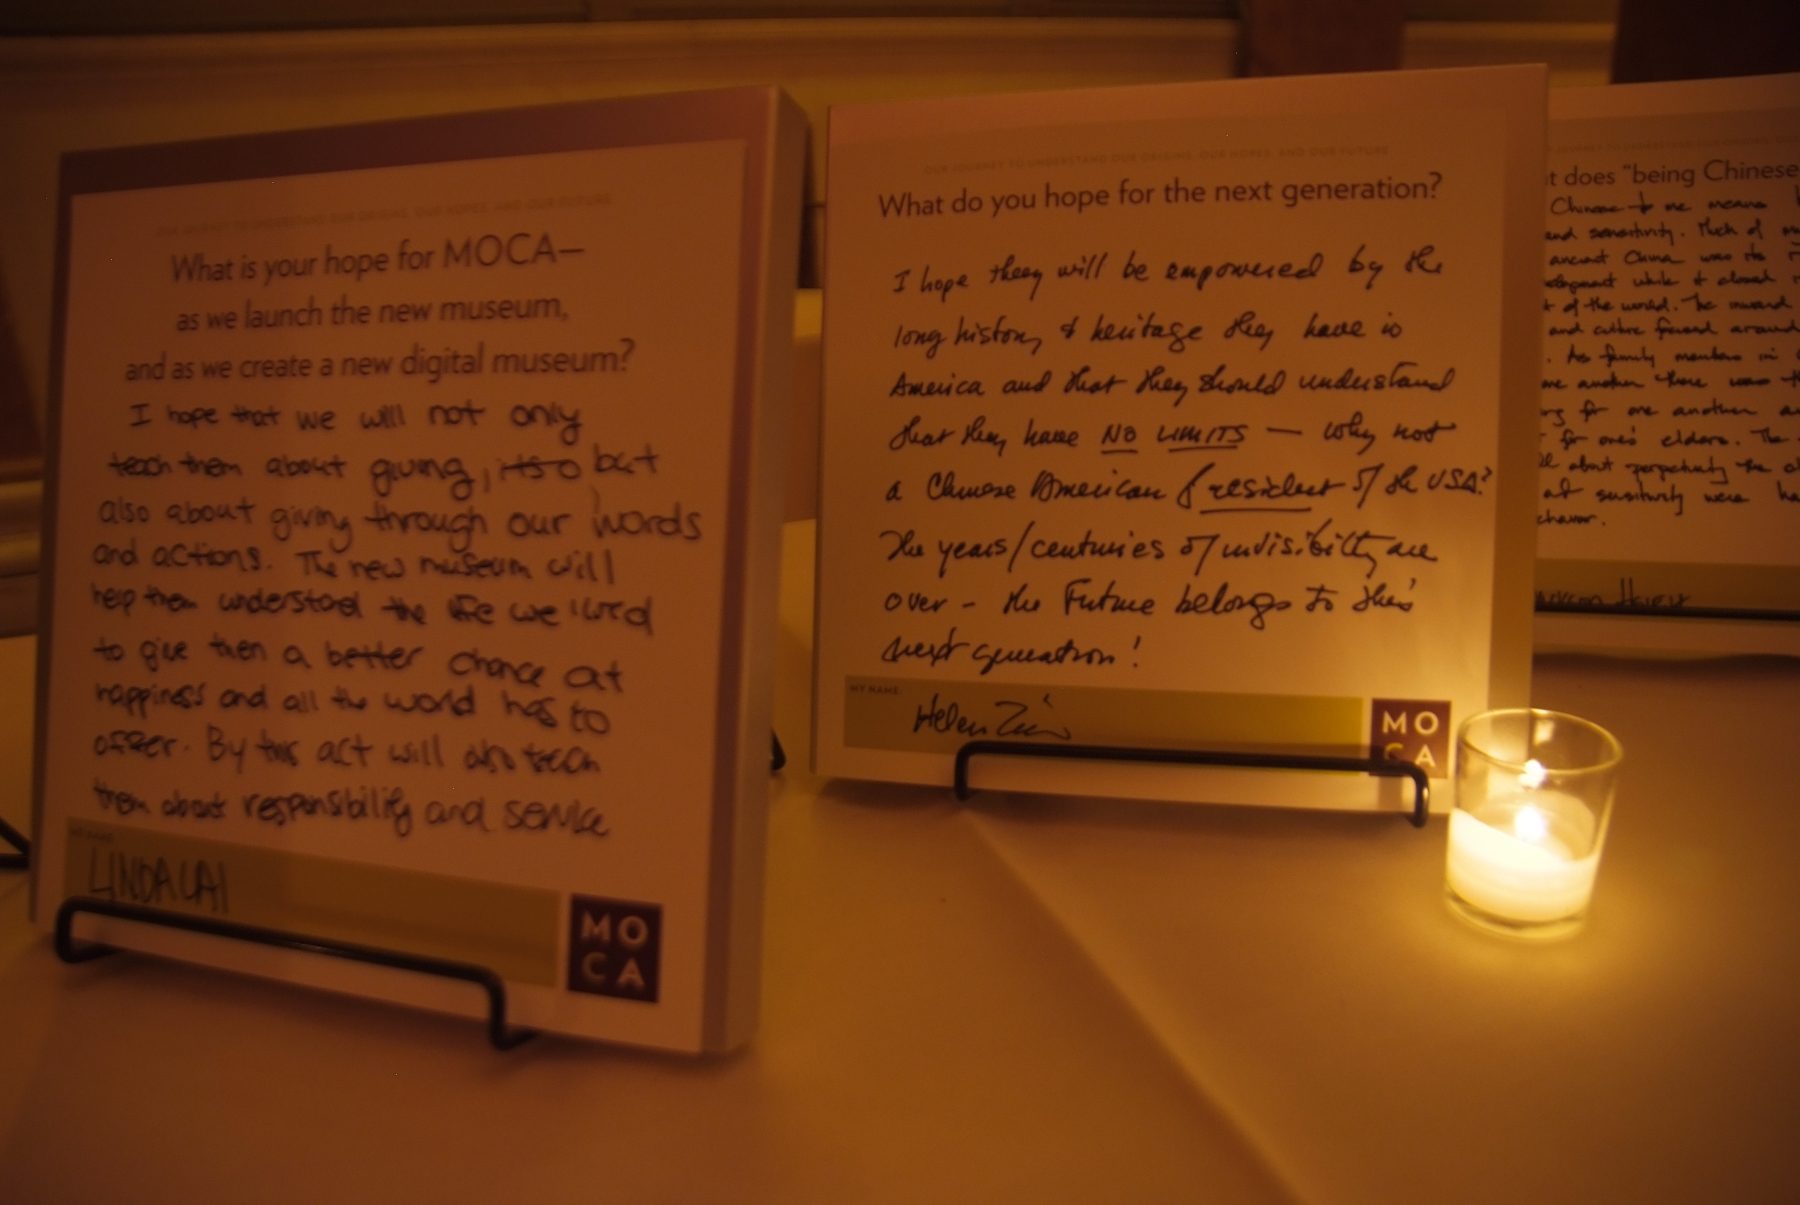 OUR JOURNEY TO UNDERSTAND OUR ORIGINS, OUR HOPES, AND OUR FUTURE
What is your hope for MOCA—
as we launch the new museum,
and as we create a new digital museum?
I hope that we will not only
teach them about giving, but
also about giving through our words
and actions. The new museum will
help them understand the life we lived
to give them a better chance at
happiness and all the world has to
offer. By this act will also teach
them about responsibility and service
MY NAME:
LINDA LAI
MO
CA
OUR JOURNEY TO UNDERSTAND OUR ORIGINS, OUR HOPES, AND OUR FUTURE
What do you hope for the next generation?
I hope they will be empowered by the
long history & heritage they have in
America and that they should understand
that they have NO LIMITS — why not
a Chinese American President of the USA?
The years/centuries of invisibility are
over - the Future belongs to this
next generation!
MY NAME:
Helen
MO
CA
JOURNEY TO UNDERSTAND OUR ORIGINS, OUR
does "being Chinese
Chinese to me means
and sensitivity. Much of
ancient China was its
while it allowed
of the world. The inward
and culture formed around
. As family members in
one another there was
for one another
for one's elders. The
about perpetuity the
sensitivity were